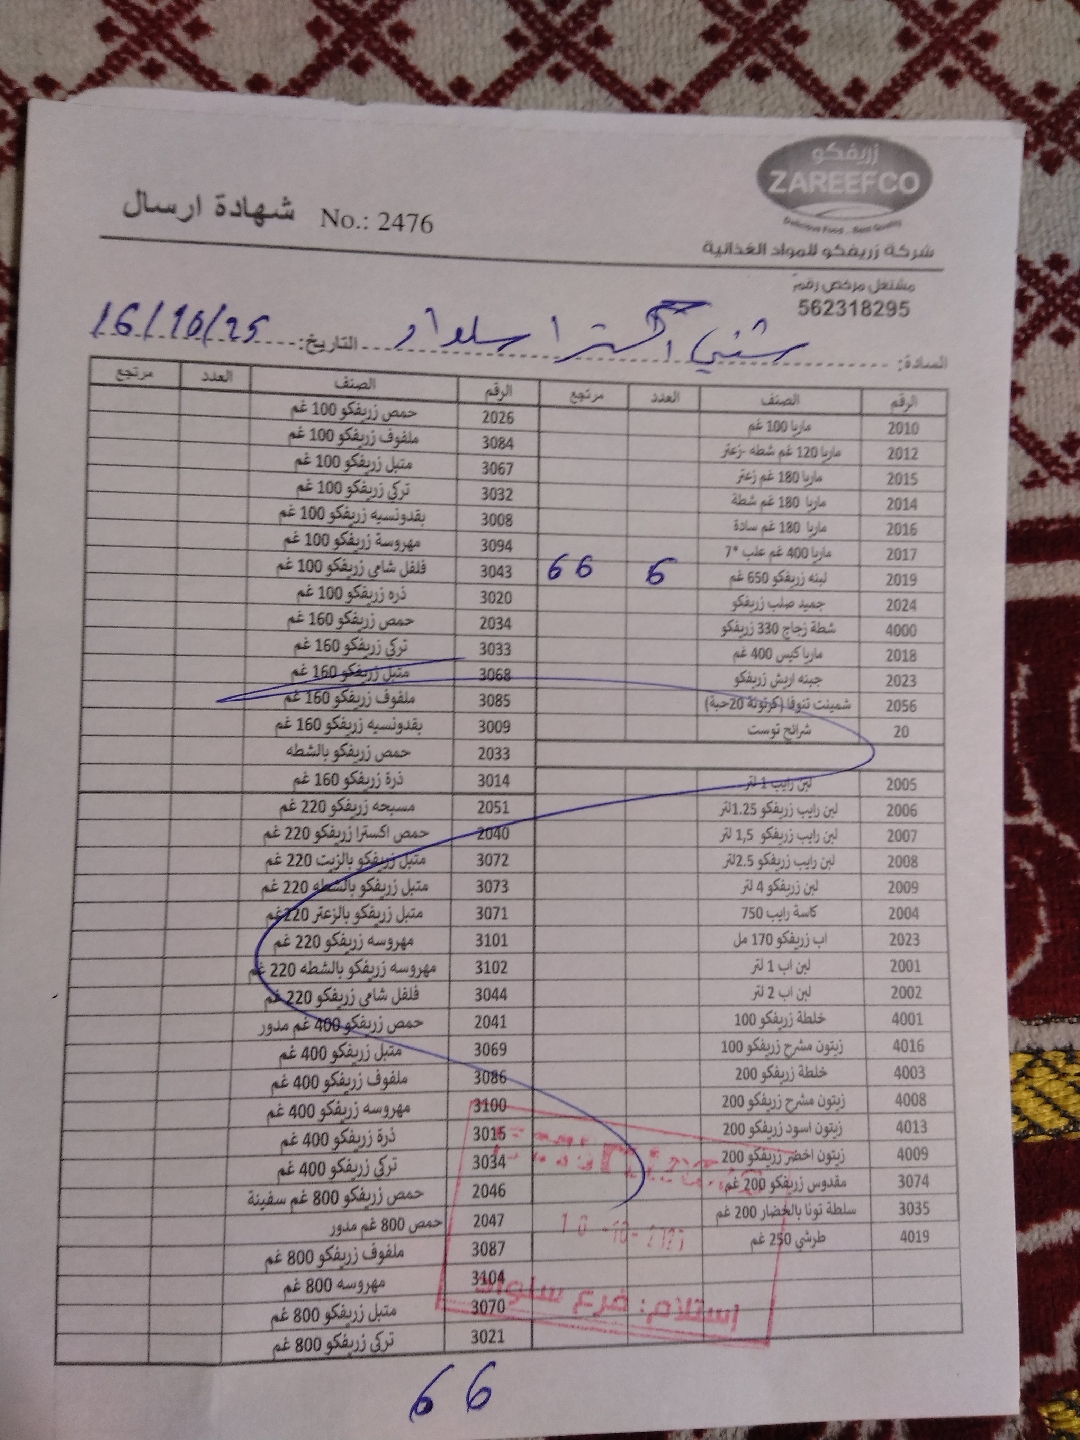 زريفكو
ZAREEFCO
Delicious Food .. Best Quality
شركة زريفكو للمواد الغذائية
شهادة ارسال No.: 2476
مشتغل مرخص رقم:
562318295
السادة: سلواد التاريخ: 16/10/25
الرقم الصنف العدد مرتجع الرقم الصنف العدد مرتجع
2010 ماريا 100 غم 2026 حمص زريفكو 100 غم
2012 ماريا 120 غم شطه -زعتر 3084 ملفوف زريفكو 100 غم
2015 ماريا 180 غم زعتر 3067 متبل زريفكو 100 غم
2014 ماريا 180 غم شطة 3032 تركي زريفكو 100 غم
2016 ماريا 180 غم سادة 3008 بقدونسيه زريفكو 100 غم
2017 ماريا 400 غم علب *7 3094 مهروسة زريفكو 100 غم
2019 لبنه زريفكو 650 غم 6 66 3043 فلفل شامي زريفكو 100 غم
2024 جميد صلب زريفكو 3020 ذره زريفكو 100 غم
4000 شطة زجاج 330 زريفكو 2034 حمص زريفكو 160 غم
2018 ماريا كيس 400 غم 3033 تركي زريفكو 160 غم
2023 جبنه اريش زريفكو 3068 متبل زريفكو 160 غم
2056 شمينت تنوفا (كرتونة 20حبة) 3085 ملفوف زريفكو 160 غم
20 شرائح توست 3009 بقدونسيه زريفكو 160 غم
2033 حمص زريفكو بالشطه
2005 لبن رايب 1 لتر 3014 ذرة زريفكو 160 غم
2006 لبن رايب زريفكو 1.25لتر 2051 مسبحه زريفكو 220 غم
2007 لبن رايب زريفكو 1,5 لتر 2040 حمص اكسترا زريفكو 220 غم
2008 لبن رايب زريفكو 2.5لتر 3072 متبل زريفكو بالزيت 220 غم
2009 لبن زريفكو 4 لتر 3073 متبل زريفكو بالشطه 220 غم
2004 كاسة رايب 750 3071 متبل زريفكو بالزعتر 220 غم
2023 اب زريفكو 170 مل 3101 مهروسه زريفكو 220 غم
2001 لبن اب 1 لتر 3102 مهروسه زريفكو بالشطه 220 غم
2002 لبن اب 2 لتر 3044 فلفل شامي زريفكو 220 غم
4001 خلطة زريفكو 100 2041 حمص زريفكو 400 غم مدور
4016 زيتون مشرح زريفكو 100 3069 متبل زريفكو 400 غم
4003 خلطة زريفكو 200 3086 ملفوف زريفكو 400 غم
4008 زيتون مشرح زريفكو 200 3100 مهروسه زريفكو 400 غم
4013 زيتون اسود زريفكو 200 3015 ذرة زريفكو 400 غم
4009 زيتون اخضر زريفكو 200 3034 تركي زريفكو 400 غم
3074 مقدوس زريفكو 200 غم 2046 حمص زريفكو 800 غم سفينة
3035 سلطة تونا بالخضار 200 غم 2047 حمص 800 غم مدور
4019 طرشي 250 غم 3087 ملفوف زريفكو 800 غم
3104 مهروسه 800 غم
3070 متبل زريفكو 800 غم
3021 تركي زريفكو 800 غم
استلام: فرع سلواد
66